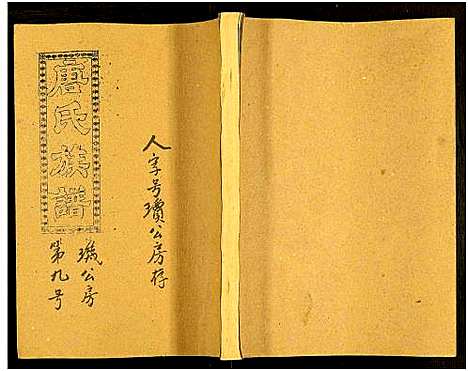 人字号瓊公房存
唐氏族譜
璣公房
第九号